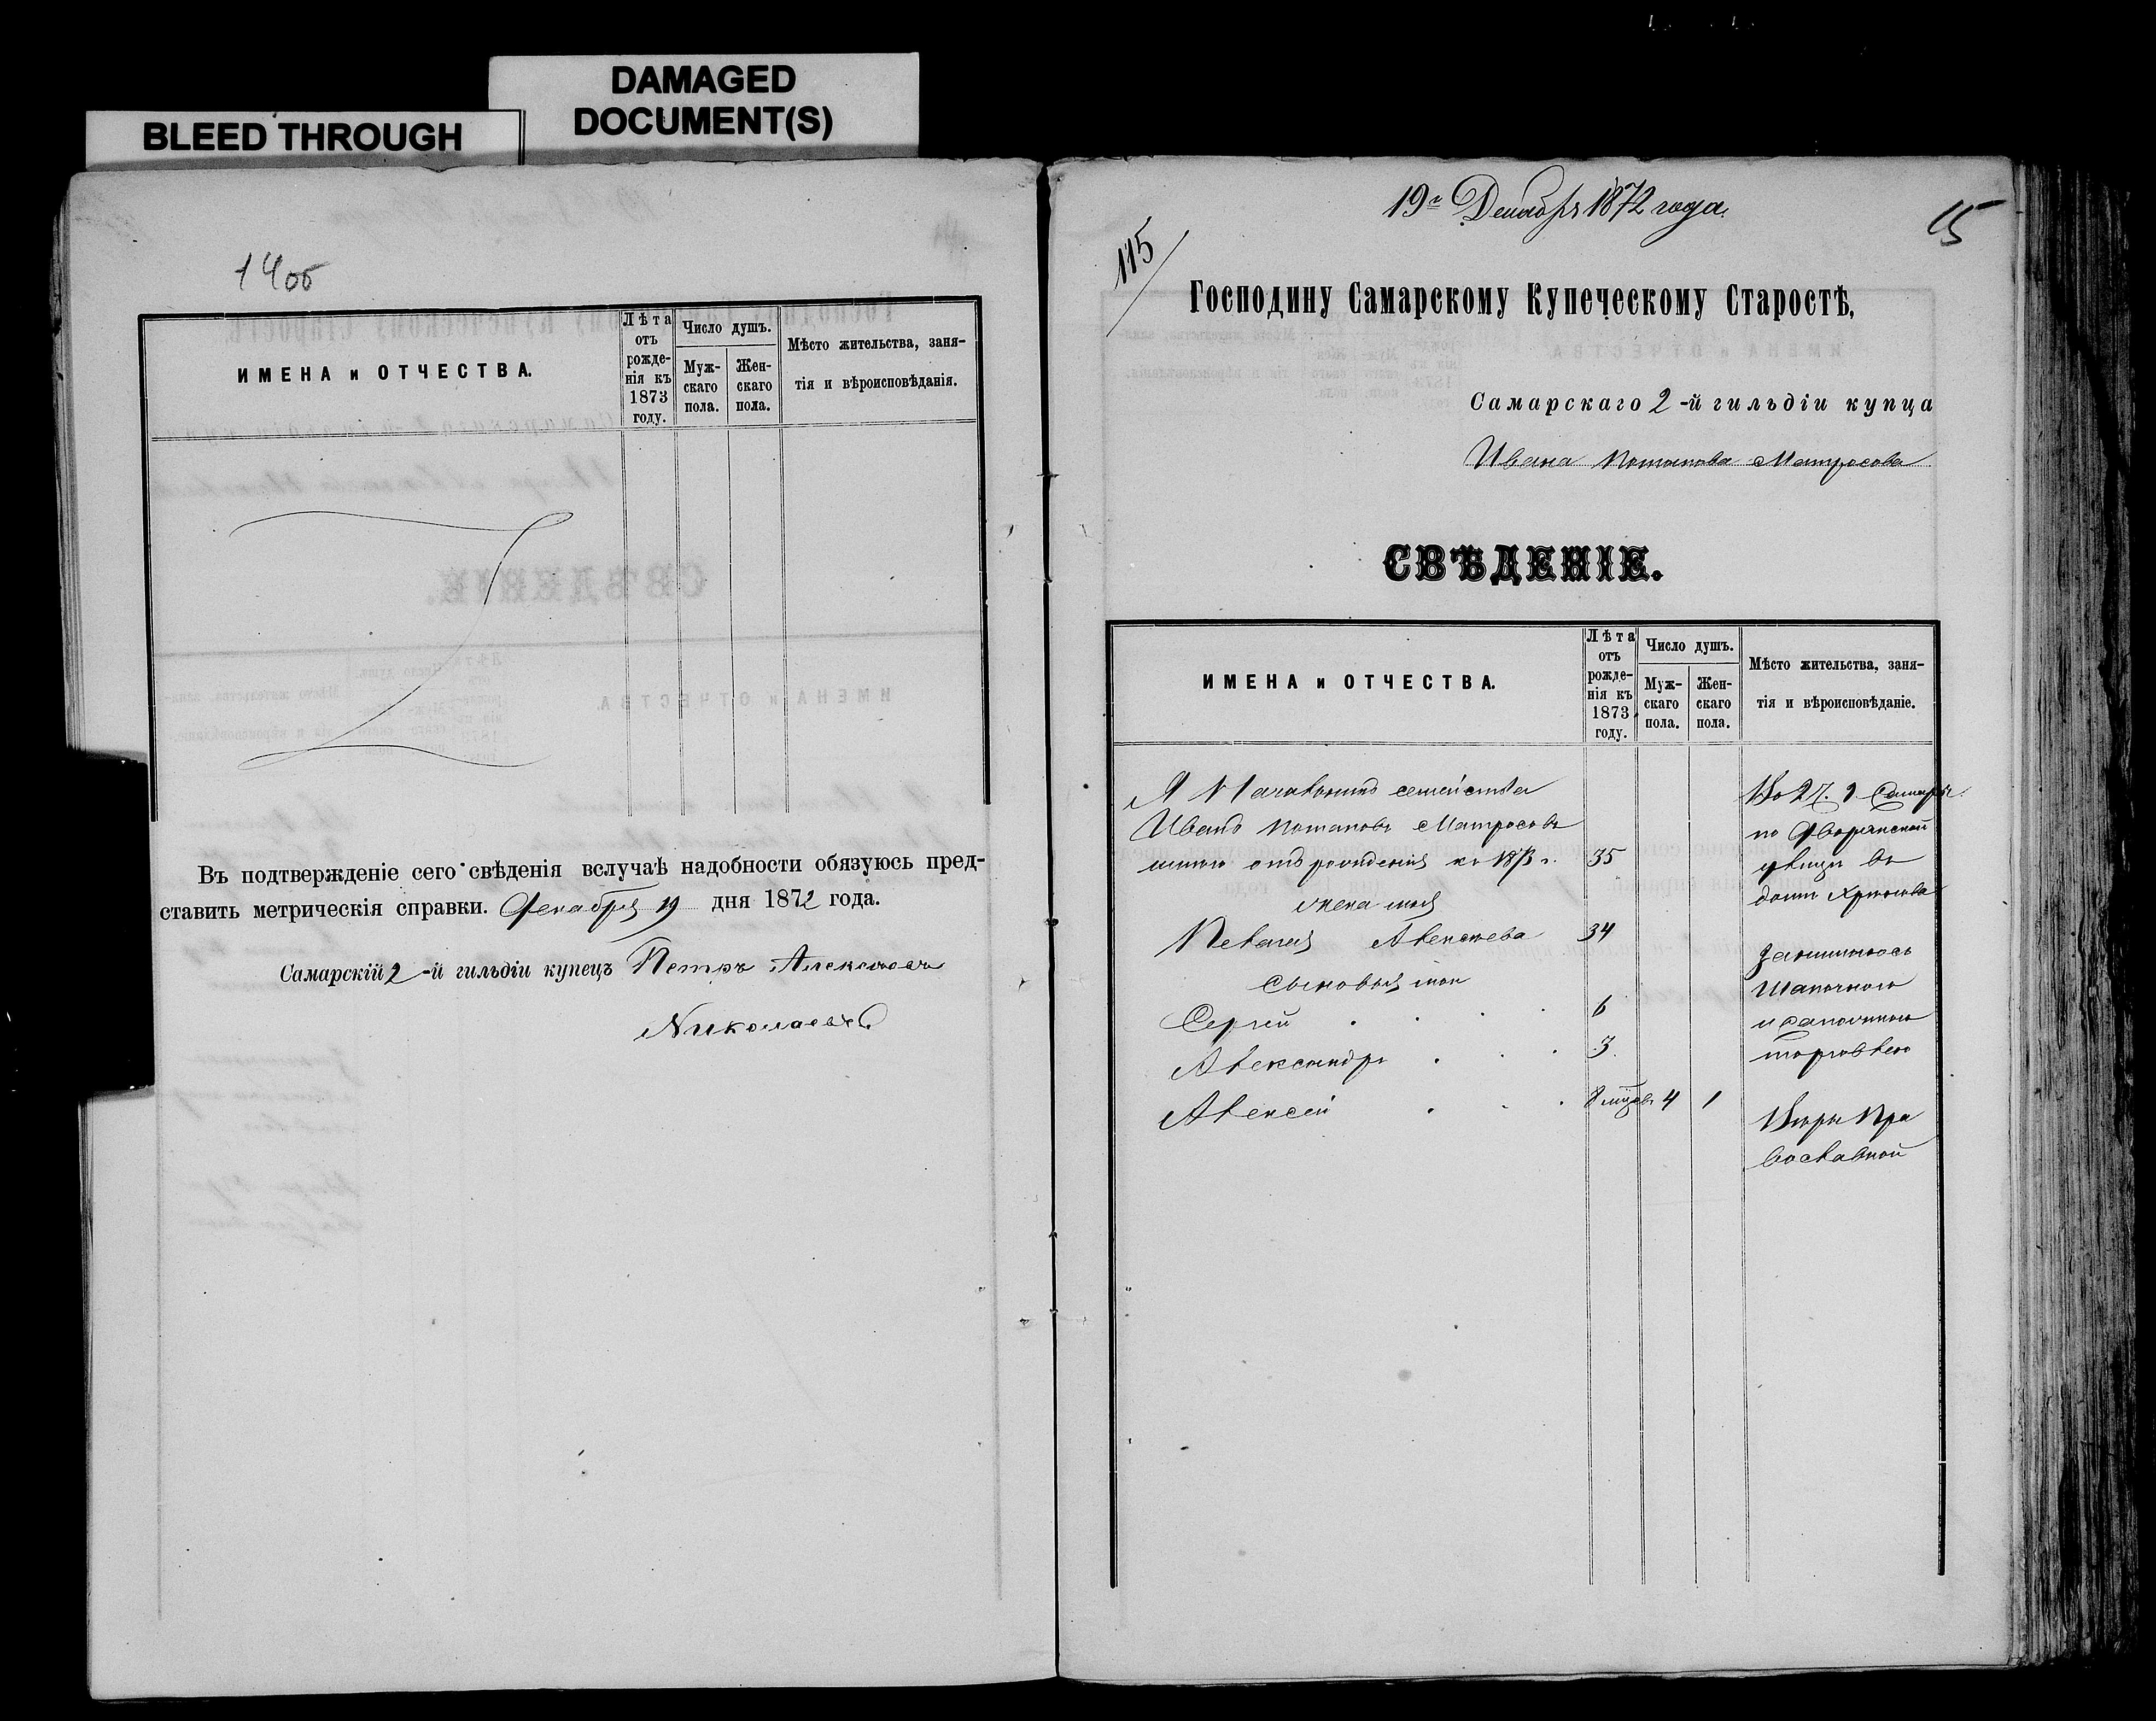 DAMAGED
DOCUMENT(S)
BLEED THROUGH
14об
ИМЕНА и ОТЧЕСТВА.
Лѣта
отъ
рожде-
нія къ
1873
году.
Число душъ.
Муж-
скаго
пола.
Жен-
скаго
пола.
Мѣсто жительства, заня-
тія и вѣроисповѣданія.
Въ подтвержденіе сего свѣденія вслучаѣ надобности обязуюсь пред-
ставить метрическія справки. Декабря 19 дня 1872 года.
Самарскій 2-й гильдіи купецъ Петръ Алексѣевъ
Николаевъ
19го Декабря 1872 года.
15
115
Господину Самарскому Купеческому Старостѣ,
Самарскаго 2-й гильдіи купца
Ивана Потапова Матросова
СВѢДЕНІЕ.
ИМЕНА и ОТЧЕСТВА.
Лѣта
отъ
рожде-
нія къ
1873
году.
Число душъ.
Муж-
скаго
пола.
Жен-
скаго
пола.
Мѣсто жительства, заня-
тія и вѣроисповѣданіе.
Я семейства
Иванъ Потаповъ Матросовъ
отъ рожденія къ 1873 г. 35
жена моя
Пелагея Алексѣева 34
сыновья мои
Сергей 6
Александръ 3
Алексей 8 4 1
Самарѣ
по Дворянской
улицѣ въ
домѣ
Занимаюсь
Шапочною
и сапожною
торговлею
Вѣры Пра
вославной